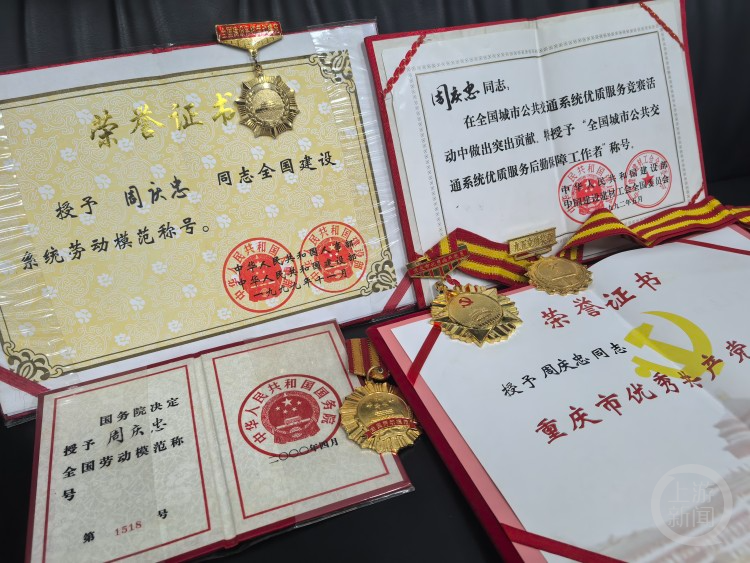 荣誉证书
授予 周庆忠 同志全国建设
系统劳动模范称号。
中华人民共和国人事部
中华人民共和国建设部
一九九九年十一月
周庆忠同志,
在全国城市公共交通系统优质服务竞赛活
动中做出突出贡献,特授予“全国城市公共交
通系统优质服务后勤保障工作者”称号。
中华人民共和国建设部
中国建设建材工会全国委员会
一九九二年五月
国务院决定
授予 周庆忠
全国劳动模范称
号
第 1518 号
中华人民共和国国务院
二〇〇〇年四月
荣誉证书
授予周庆忠同志
重庆市优秀共产党
上游
新闻